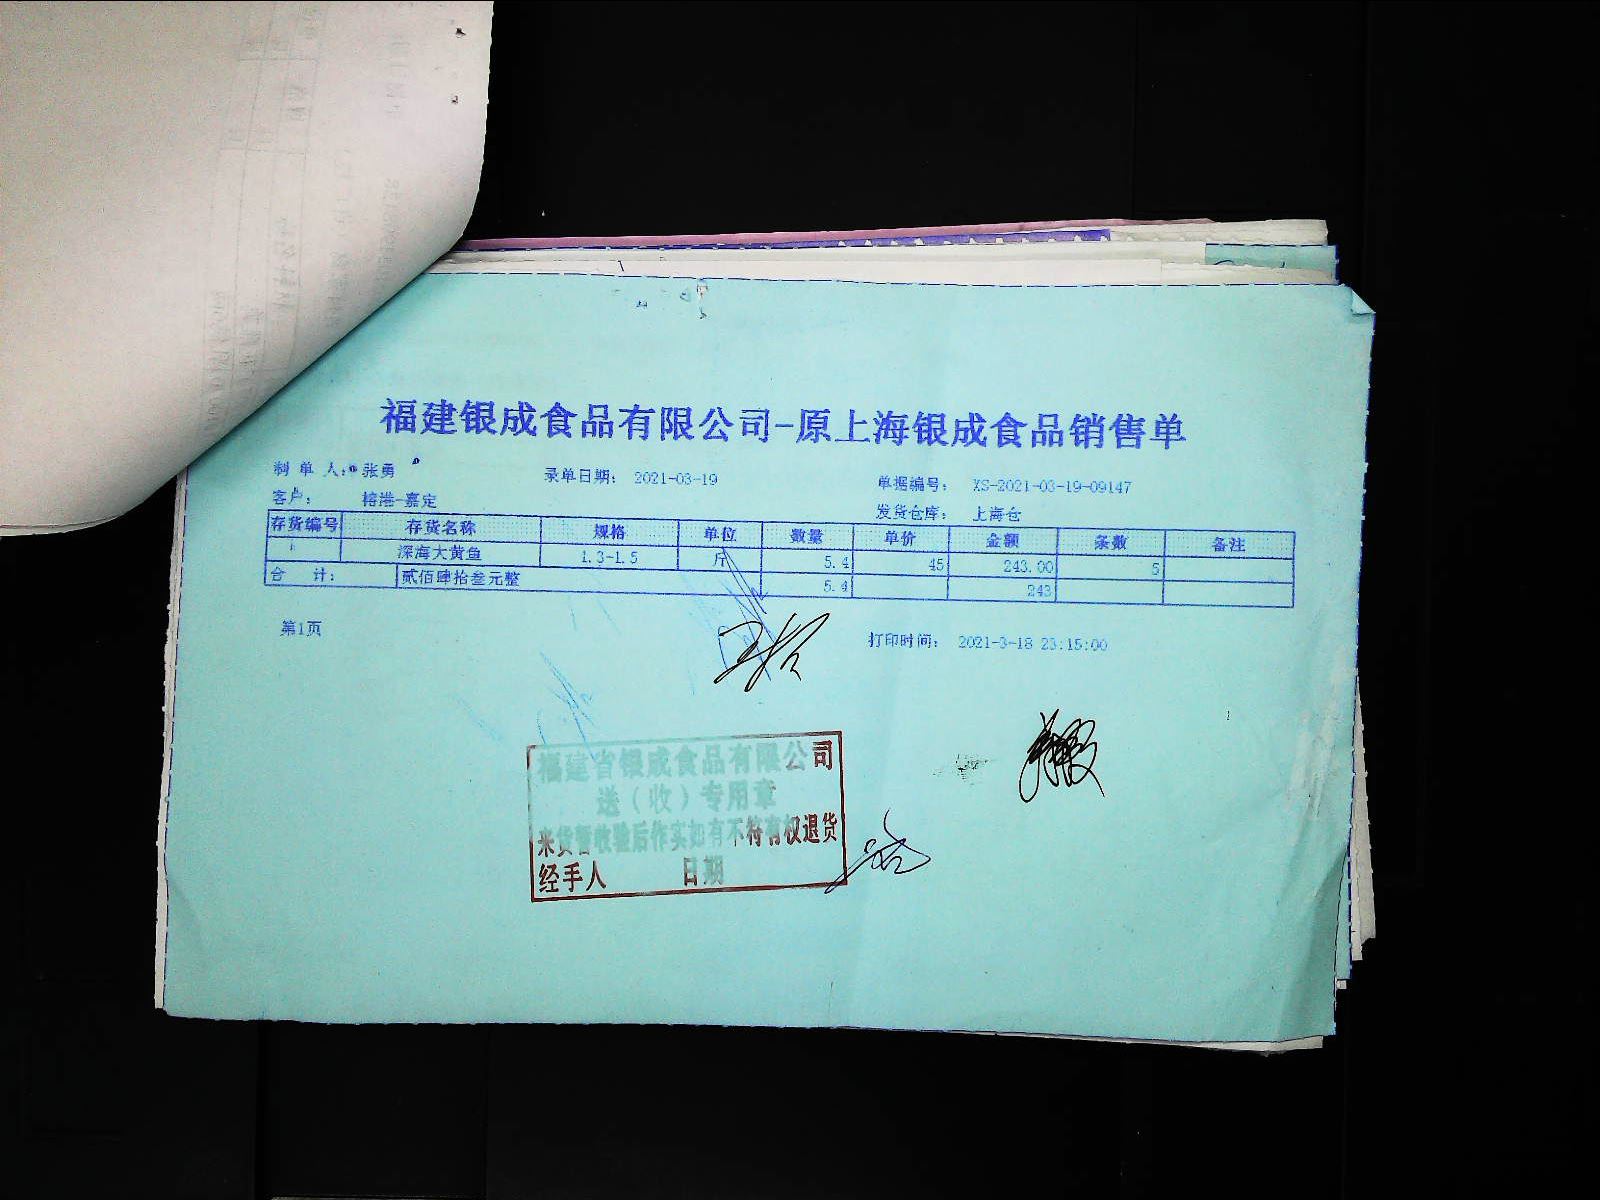 福建银成食品有限公司-原上海银成食品销售单
制 单 人: 张勇 录单日期: 2021-03-19 单据编号: XS-2021-03-19-09147
客户: 榕港-嘉定 发货仓库: 上海仓
存货编号 存货名称 规格 单位 数量 单价 金额 条数 备注
深海大黄鱼 1.3-1.5 斤 5.4 45 243.00 5
合 计: 贰佰肆拾叁元整 5.4 243
第1页 打印时间: 2021-3-18 23:15:00
福建省银成食品有限公司
送(收)专用章
来货暂收验后作实如有不符有权退货
经手人 日期